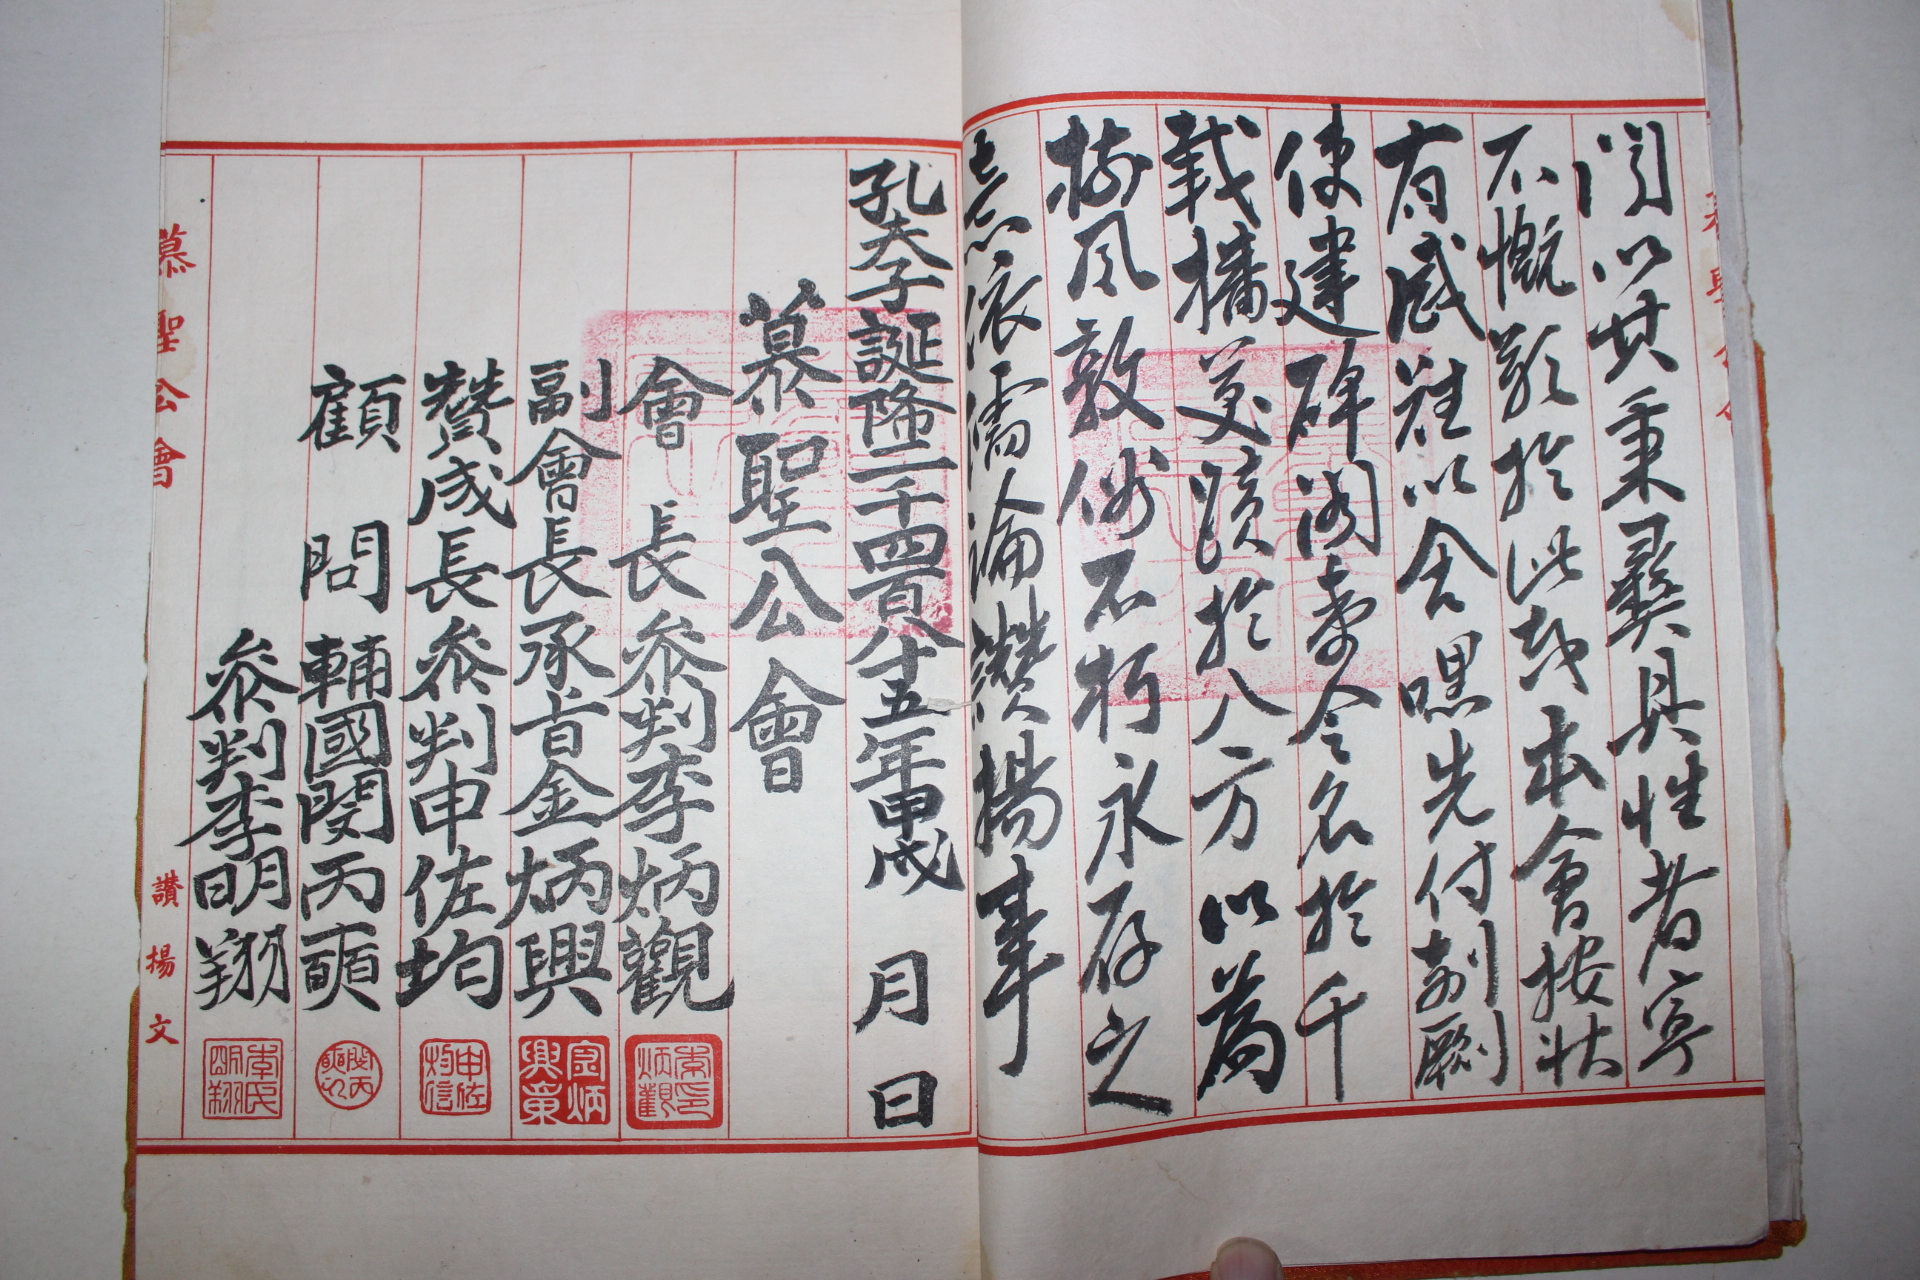 慕聖公會
閔以其秉彛具性者寧
不慨歎於此哉本會按狀
有感難以含嘿先付剞劂
使建碑閣壽令名於千
載播芟蹟於八方以爲
樹風敦俗不朽永存之
意依儒論讚揚事
孔夫子誕降二千四百八十五年甲戌 月 日
慕聖公會
會長 參判李炳觀
副會長承旨金炳興
贊成長參判申佐均
顧問 輔國閔丙奭
參判李明翔
慕聖公會 讃揚文